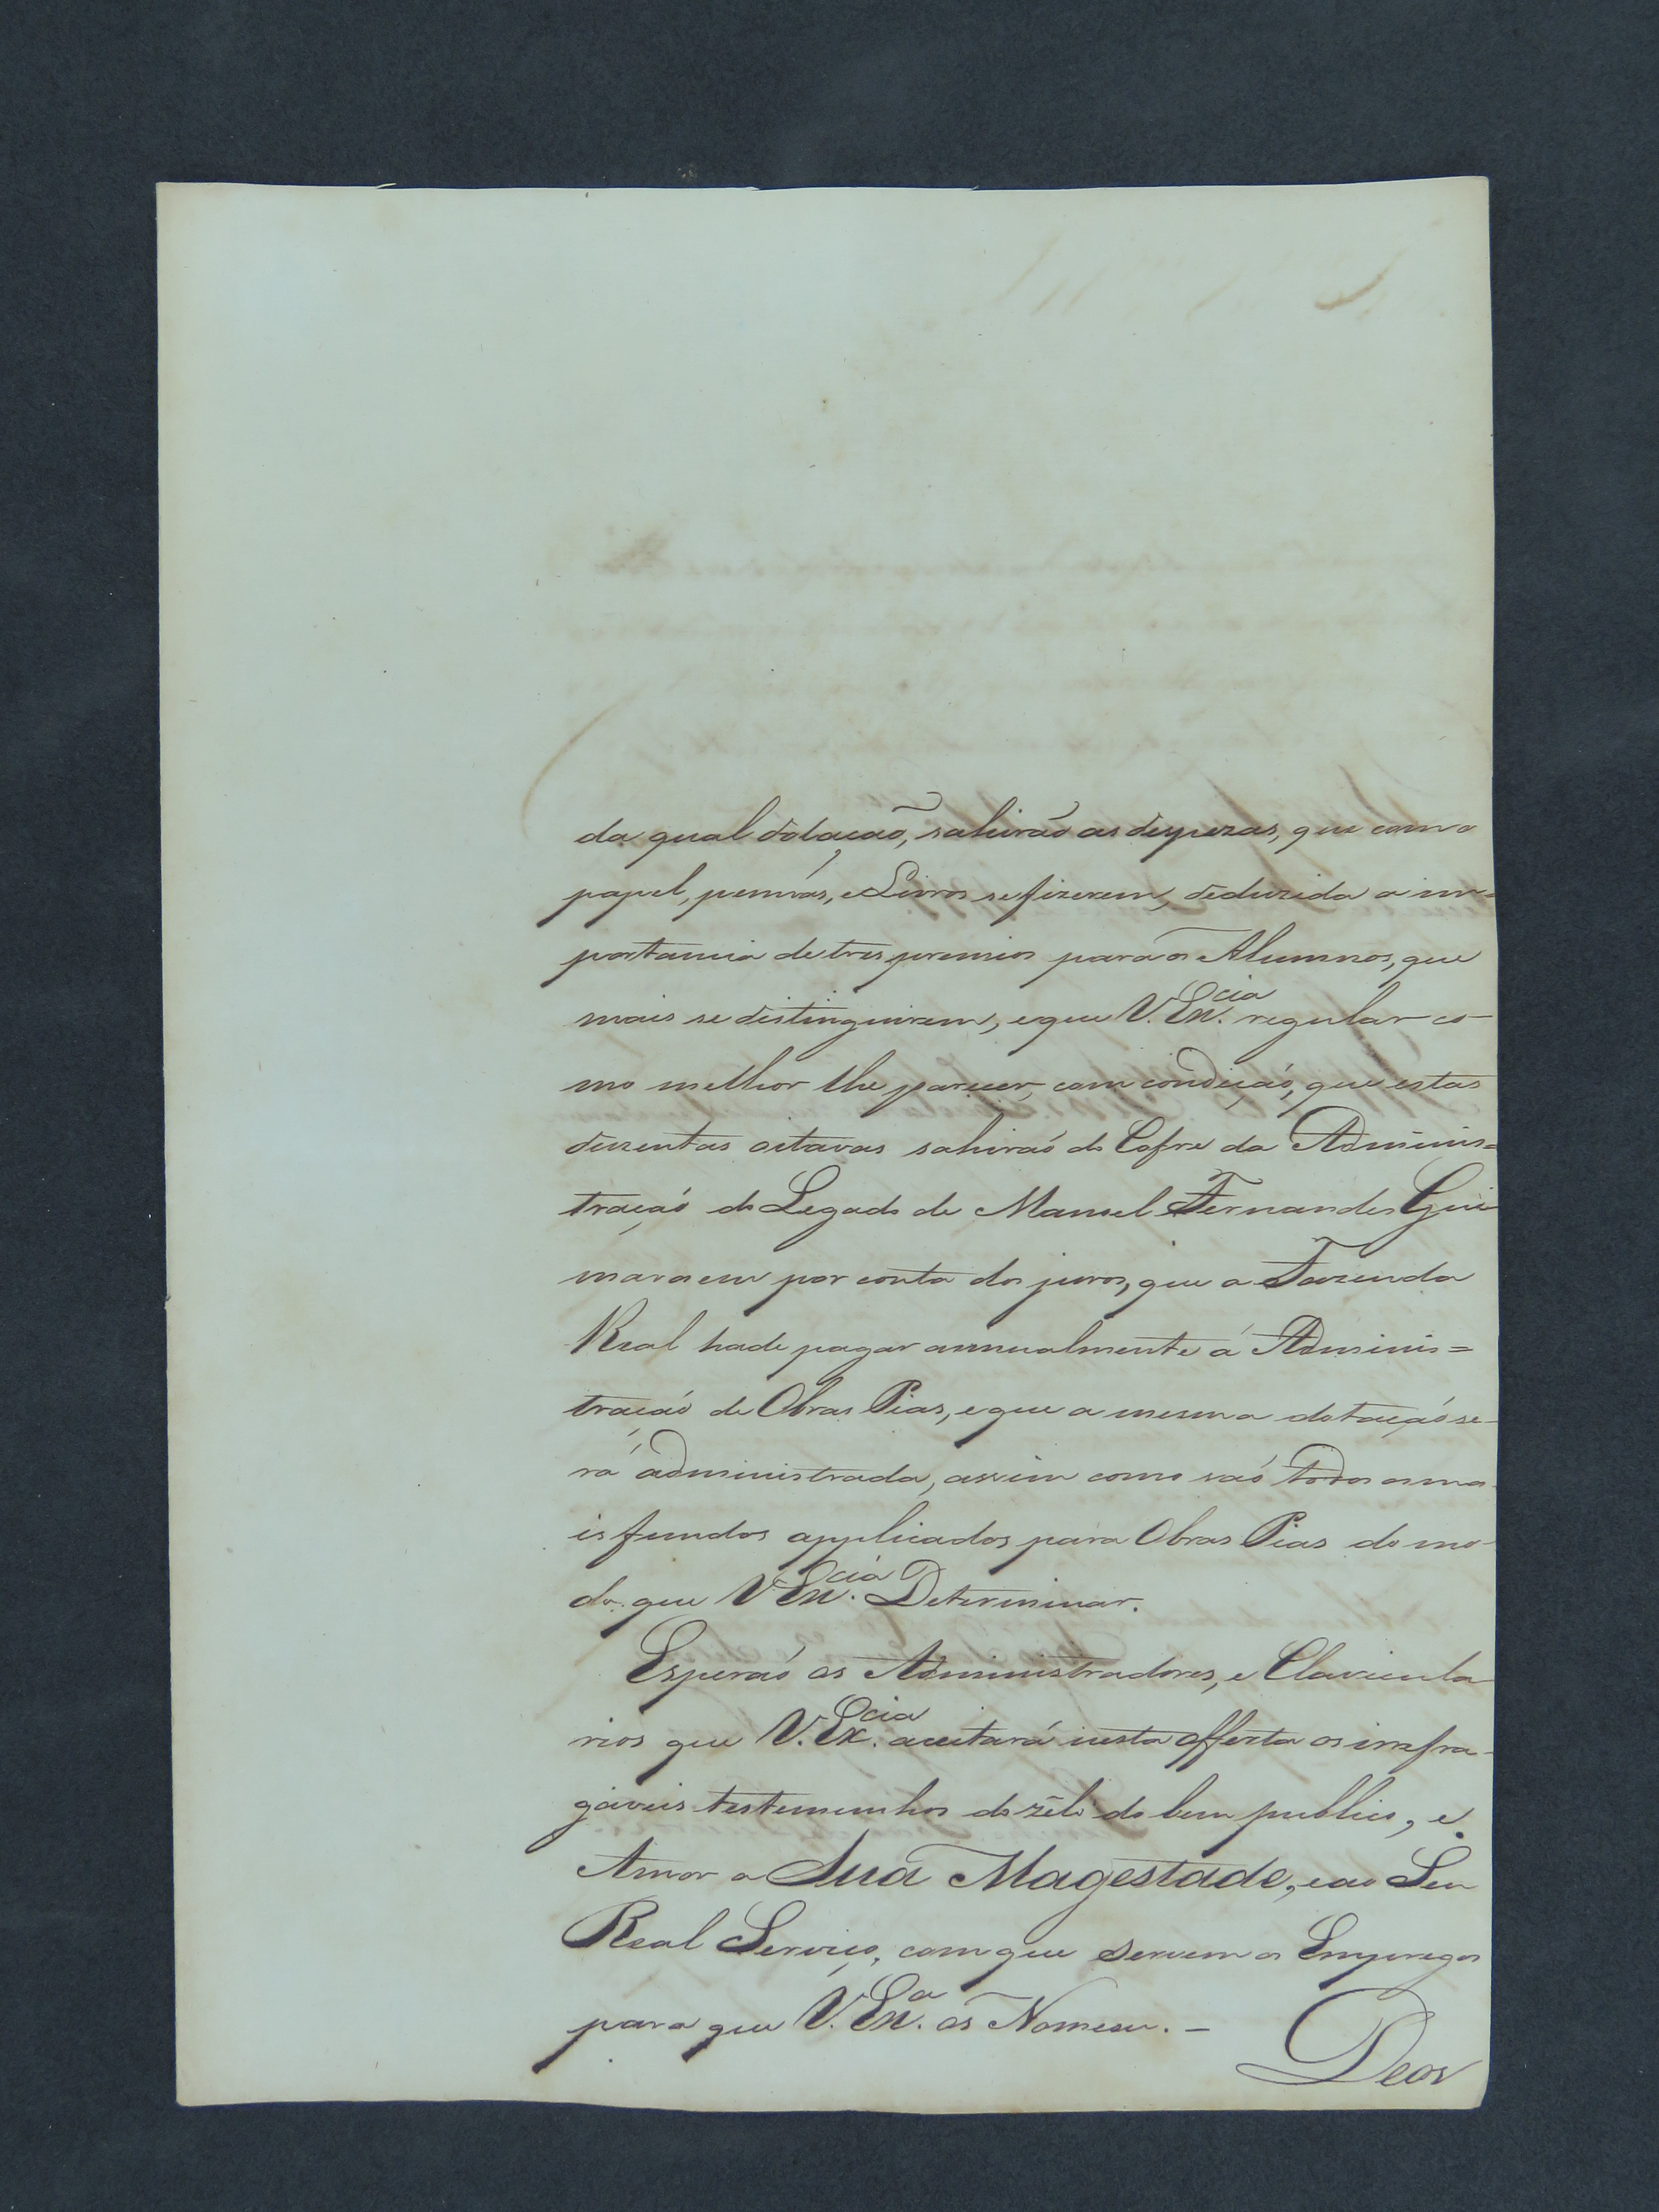 da qual dotação, sahirão as despezas, que com o
papel, pennas, e Livros se fizerem, deduzida a im=
portancia de tres premios para os Alumnos, que
mais se distinguirem, e que V. Ex.cia regular co-
mo melhor lhe parecer, com condição, que estas
duzentas oitavas sahiraó do Cofre da Adminis=
traçaó do Legado de Manoel Fernandes Gui-
maraens por conta dos juros, que a Fazenda
Real hade pagar annualmente á Adminis=
traçaó de Obras Pias, e que a mesma dotaçaó se-
rá administrada, assim como saó todos os ma-
is fundos applicados para Obras Pias do mo-
do que V. Ex.cia Determinar.
Esperaó os Administradores, e Clavicula-
rios que V. Ex.cia aceitará nesta offerta os irrefra-
gaveis testemunhos do zêlo do bem publico, e
Amor a Sua Magestade, e ao Seu
Real Serviço, com que servem os Empregos
para que V. Ex.a os Nomeou. -
Deos